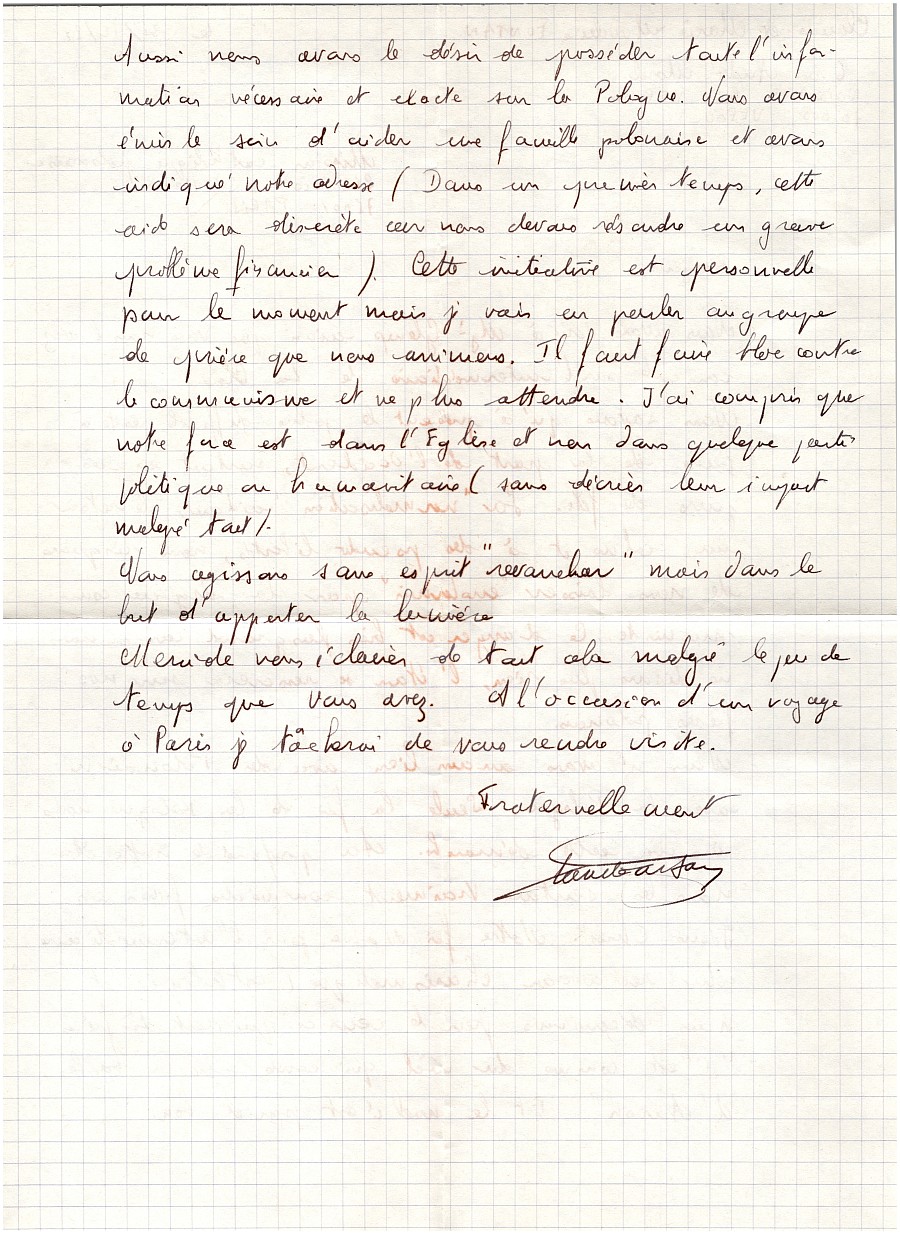 Aussi nous avons le désir de posséder toute l'infor-
mation nécessaire et exacte sur la Pologne. Nous avons
émis le soin d'aider une famille polonaise et avons
indiqué notre adresse ( Dans un premier temps, cette
aide sera discrète car nous devons résoudre un grave
problème financier ). Cette initiative est personnelle
pour le moment mais je vais en parler au groupe
de prière que nous animons. Il faut faire bloc contre
le communisme et ne plus attendre. J'ai compris que
notre force est dans l'Eglise et non dans quelque partis
politique ou humanitaire ( sans décrier leur impact
malgré tout ).
Nous agissons sans esprit "revanchar" mais dans le
but d'apporter la lumière
Merci de nous éclairer de tout cela malgré le peu de
temps que vous avez. A l'occasion d'un voyage
à Paris je tâcherai de vous rendre visite.
Fraternellement